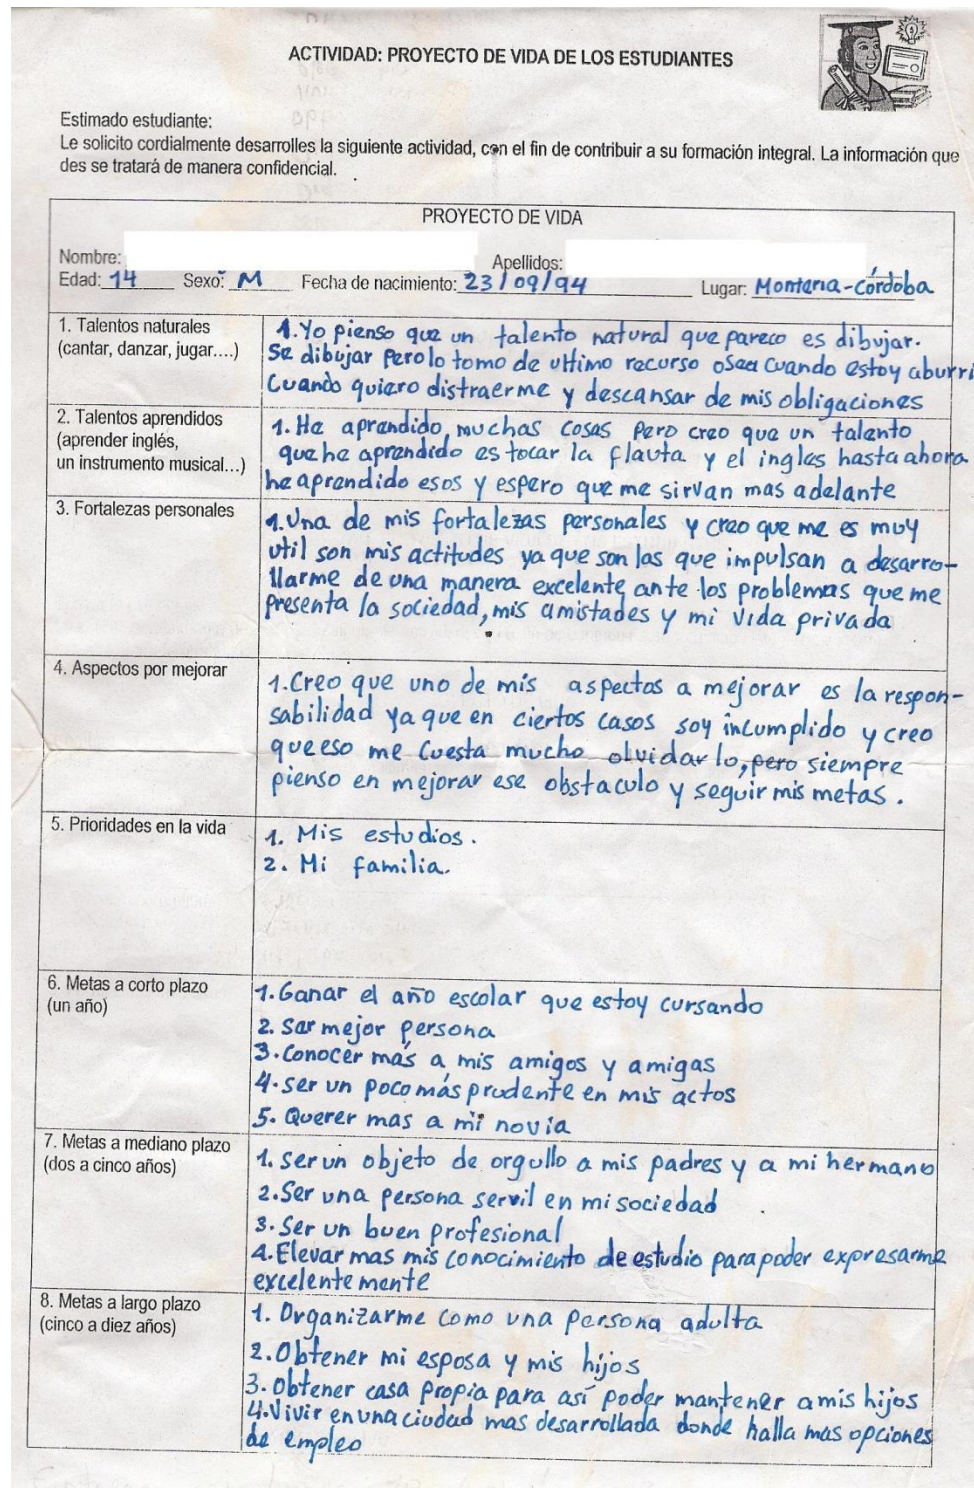 ACTIVIDAD: PROYECTO DE VIDA DE LOS ESTUDIANTES
Estimado estudiante:
Le solicito cordialmente desarrolles la siguiente actividad, con el fin de contribuir a su formación integral. La información que
des se tratará de manera confidencial.
PROYECTO DE VIDA
Nombre: Apellidos:
Edad: 14 Sexo: M Fecha de nacimiento: 23/09/94 Lugar: Montería-Córdoba
1. Talentos naturales
(cantar, danzar, jugar....)
1. Yo pienso que un talento natural que pareco es dibujar.
Se dibujar pero lo tomo de ultimo recurso osea cuando estoy aburri
Cuando quiero distraerme y descansar de mis obligaciones
2. Talentos aprendidos
(aprender inglés,
un instrumento musical...)
1. He aprendido muchas cosas pero creo que un talento
que he aprendido es tocar la flauta y el ingles hasta ahora
he aprendido esos y espero que me sirvan mas adelante
3. Fortalezas personales
1. Una de mis fortalezas personales y creo que me es muy
util son mis actitudes ya que son las que impulsan a desarro-
llarme de una manera excelente ante los problemas que me
presenta la sociedad, mis amistades y mi vida privada
4. Aspectos por mejorar
1. Creo que uno de mis aspectos a mejorar es la respon-
sabilidad ya que en ciertos casos soy incumplido y creo
que eso me cuesta mucho olvidarlo, pero siempre
pienso en mejorar ese obstaculo y seguir mis metas.
5. Prioridades en la vida
1. Mis estudios.
2. Mi familia.
6. Metas a corto plazo
(un año)
1. Ganar el año escolar que estoy cursando
2. Ser mejor persona
3. Conocer más a mis amigos y amigas
4. ser un poco más prudente en mis actos
5. Querer mas a mi novia
7. Metas a mediano plazo
(dos a cinco años)
1. Ser un objeto de orgullo a mis padres y a mi hermano
2. Ser una persona servil en mi sociedad
3. Ser un buen profesional
4. Elevar mas mis conocimiento de estudio para poder expresarme
excelentemente
8. Metas a largo plazo
(cinco a diez años)
1. Organizarme como una persona adulta
2. Obtener mi esposa y mis hijos
3. Obtener casa propia para así poder mantener a mis hijos
4. Vivir en una ciudad mas desarrollada donde halla mas opciones
de empleo